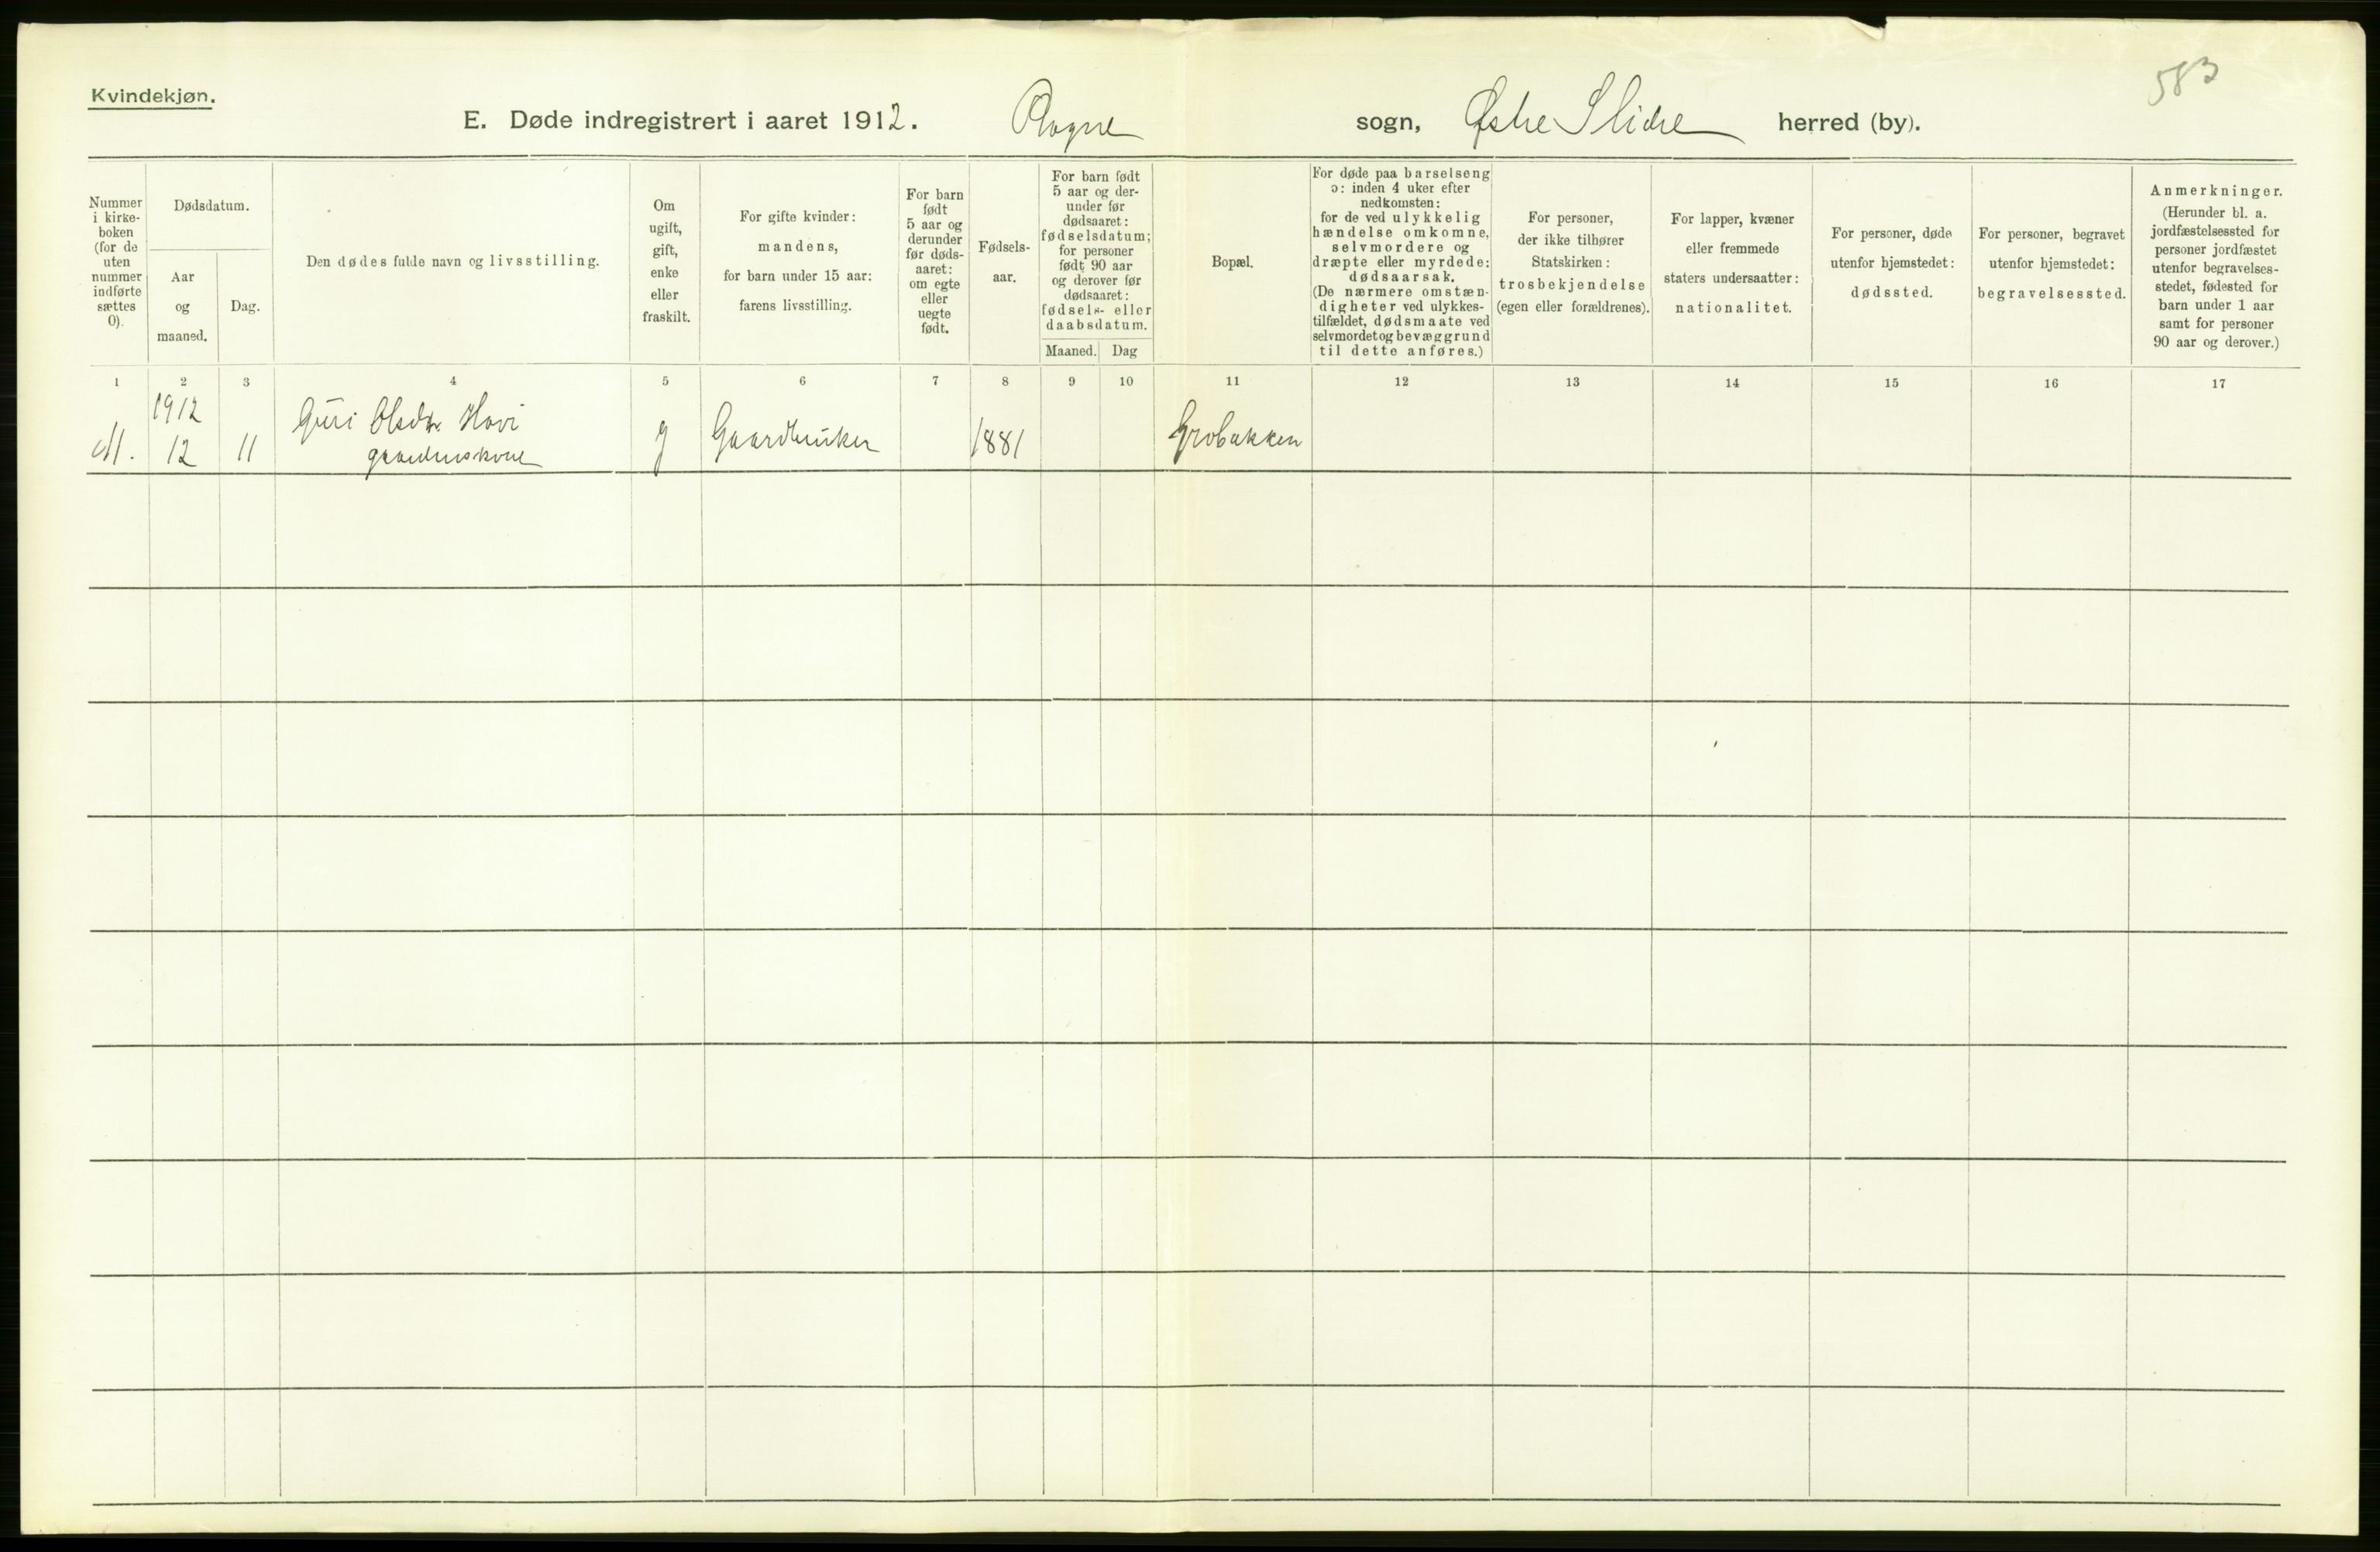 Kvindekjøn.
583
E. Døde indregistrert i aaret 1912. Rogne sogn, Østre Slidre herred (by).
Nummer
i kirke-
boken
(for de
uten
nummer
indførte
sættes
0).
Dødsdatum.
Aar
og
maaned.
Dag.
Den dødes fulde navn og livsstilling.
Om
ugift,
gift,
enke
eller
fraskilt.
For gifte kvinder:
mandens,
for barn under 15 aar:
farens livsstilling.
For barn
født
5 aar og
derunder
før døds-
aaret:
om egte
eller
uegte
født.
Fødsels-
aar.
For barn født
5 aar og der-
under før
dødsaaret:
fødselsdatum;
for personer
født 90 aar
og derover før
dødsaaret:
fødsels- eller
daabsdatum.
Maaned. Dag
Bopæl.
For døde paa barselseng
ɔ: inden 4 uker efter
nedkomsten:
for de ved ulykkelig
hændelse omkomne,
selvmordere og
dræpte eller myrdede:
dødsaarsak.
(De nærmere omstæn-
digheter ved ulykkes-
tilfældet, dødsmaate ved
selvmordet og bevæggrund
til dette anføres.)
For personer,
der ikke tilhører
Statskirken:
trosbekjendelse
(egen eller forældrenes).
For lapper, kvæner
eller fremmede
staters undersaatter:
nationalitet.
For personer, døde
utenfor hjemstedet:
dødssted.
For personer, begravet
utenfor hjemstedet:
begravelsessted.
Anmerkninger.
(Herunder bl. a.
jordfæstelsessted for
personer jordfæstet
utenfor begravelses-
stedet, fødested for
barn under 1 aar
samt for personer
90 aar og derover.)
1 2 3 4 5 6 7 8 9 10 11 12 13 14 15 16 17
1912
Guri Olsdtr. Hovi
11. 12 11 g Gaardbruker 1881 Grobakken